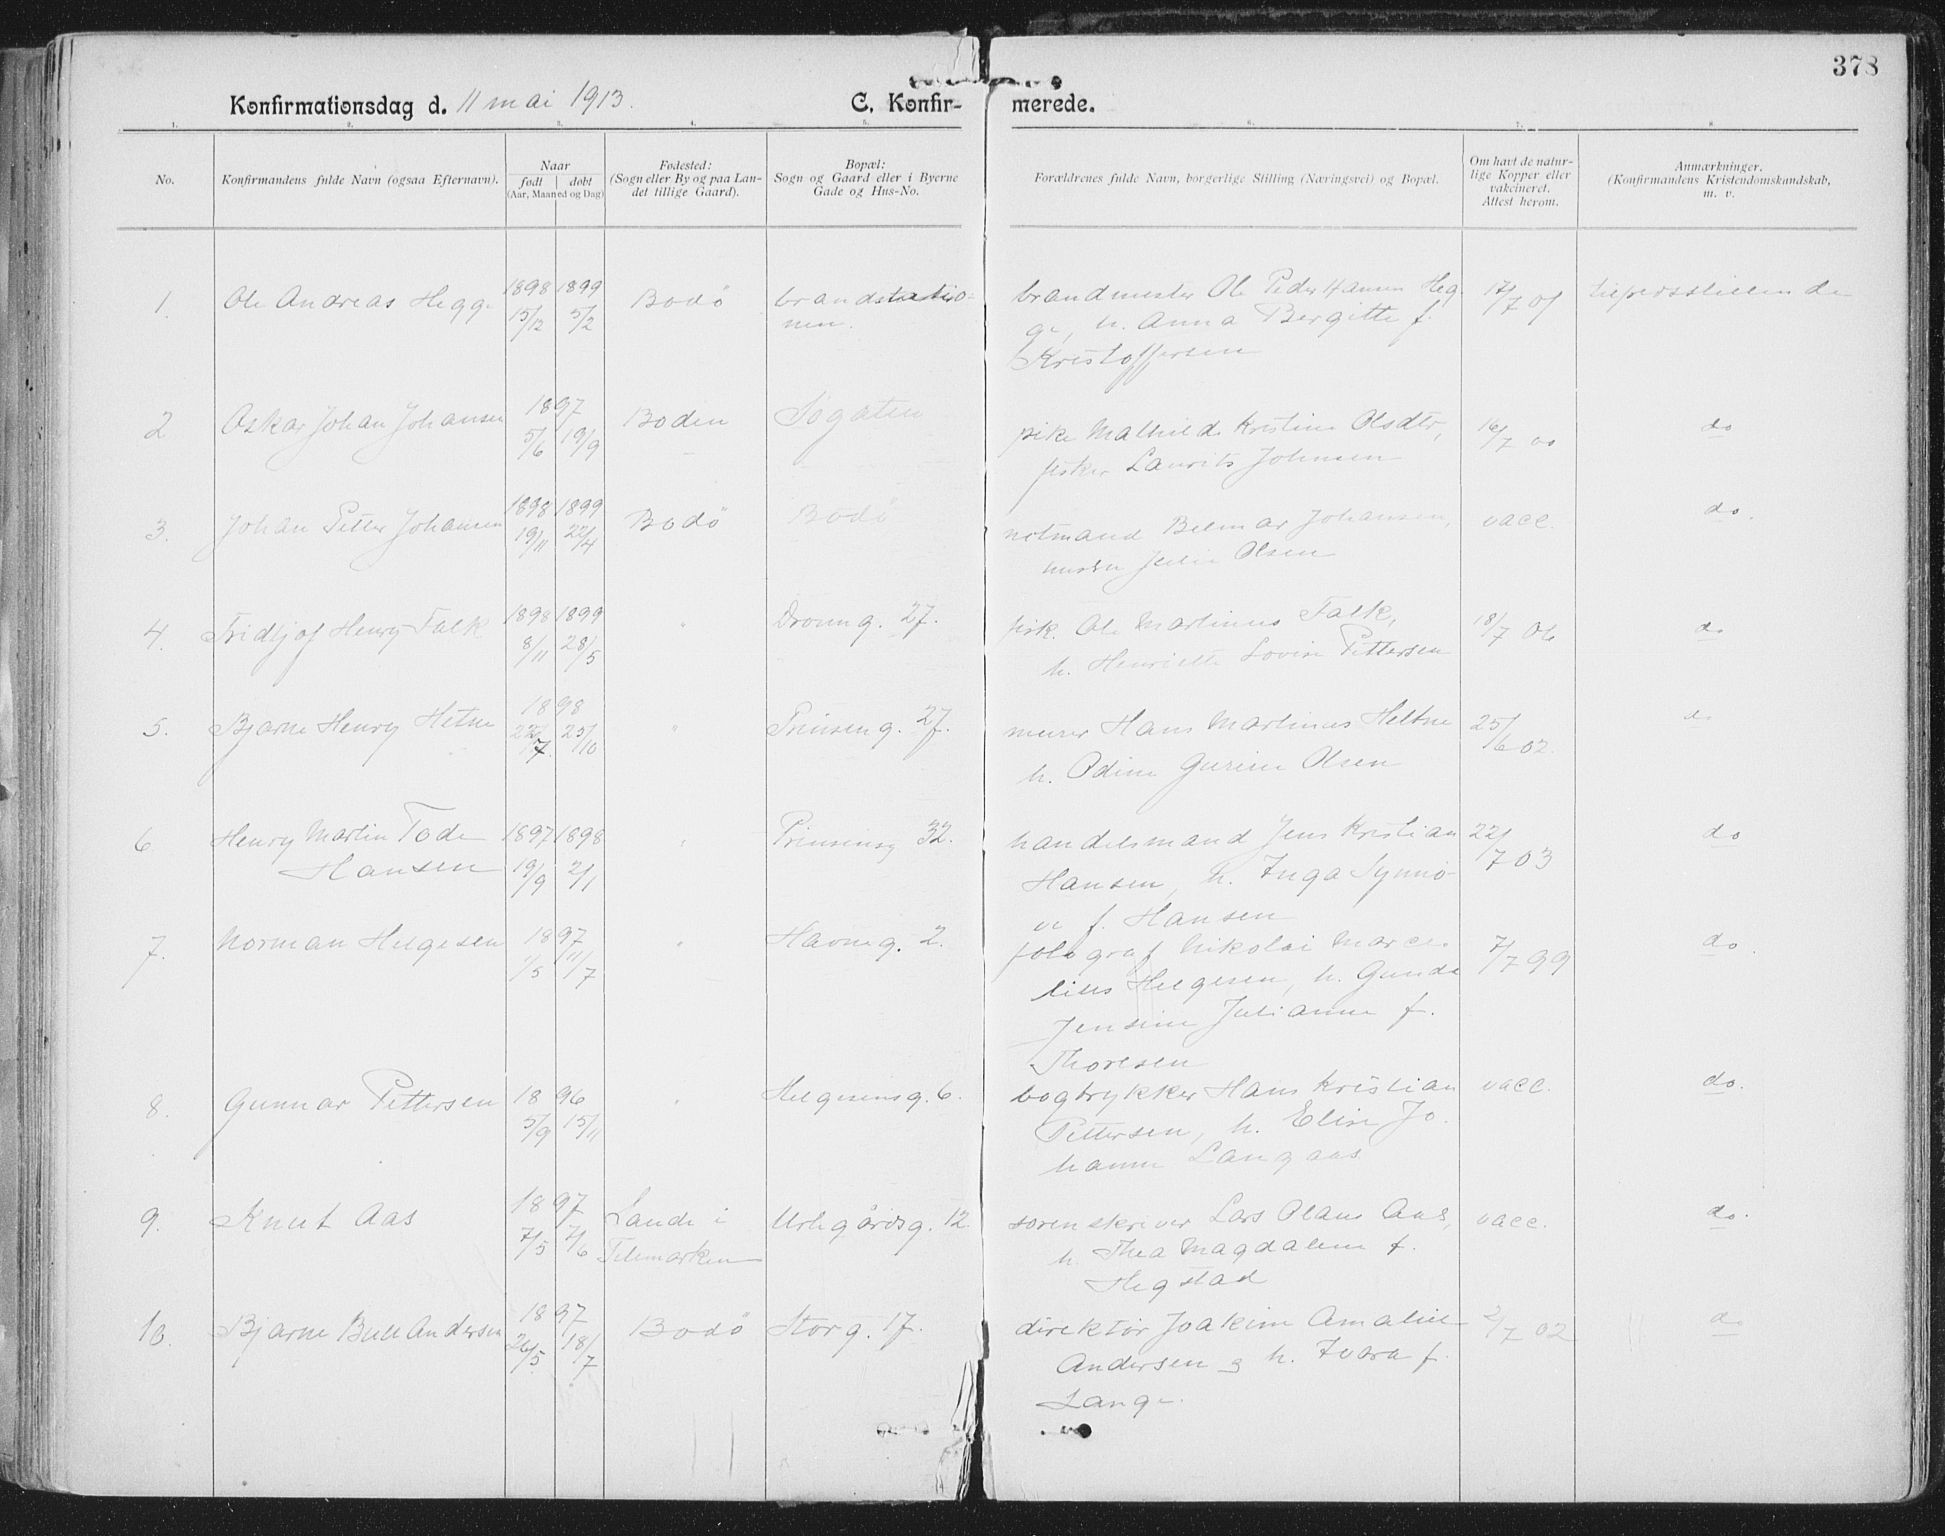 378
Konfirmationsdag d. 11 mai 1913. C. Konfirmerede.
1. 2. 3. 4. 5. 6. 7. 8.
No.
Konfirmandens fulde Navn (ogsaa Efternavn).
Naar
født | døbt
(Aar, Maaned og Dag)
Fødested:
(Sogn eller By og paa Lan-
det tillige Gaard).
Bopæl:
Sogn og Gaard eller i Byerne
Gade og Hus-No.
Forældrenes fulde Navn, borgerlige Stilling (Næringsvei) og Bopæl.
Om havt de natur-
lige Kopper eller
vakcineret.
Attest herom.
Anmærkninger.
(Konfirmandens Kristendomskundskab,
m. v.
1. Ole Andreas Hegge 1898 1899 Bodö brandstatio- brandmester Ole Peder Hansen Heg- 17/7 01
15/12 5/2 nen. ge, h. Anna Bergitte f.
Kristoffersen
2 Oskar Johan Johansen 1897 Boden Søgaten pike Mathilde Kristine Olsdtr, 16/7 00 do
5/6 19/9 fisker Laurits Johnsen
3. Johan Petter Johansen 1898 1899 Bodö Bodö notmand Johansen, vacc. do.
19/11 22/4 hustru Julie Olsen
4. Fridtjof Henry Falk 1898 1899 " Dronng. 27. fisk. Ole Martinus Falk, 18/7 06 do
8/11 28/5 h. Henriette Lovise Pettersen
5. Bjarne Henry Hetne 1898 " Prinseng. 27. murer Hans Martinus Heltne 25/6 02. do
22/7. 25/10 h. Odine Gurine Olsen
6 Henry Martin Tode 1897 1898 " Prinsensg 32. handelsmand Jens Kristian 22/7 03 do
Hansen 19/9 2/1 Hansen, h. Inga Synnö-
ve f. Hansen
7. Norman Helgesen 1897 " Havneg. 2. fotograf Nikolai Marce- 7/7 99 do.
1/5 11/7 lius Helgesen, h. Gunda
Jensine Julianne f.
Thoresen
8. Gunnar Pettersen 1896 " Helgesensg. 6. bogtrykker Hans Kristian vacc. do.
5/9 15/11 Pettersen, h. Elise Jo-
hanne Langaas
9. Knut Aas 1897 Sande i g. 12. sorenskriver Lars Olaus Aas, vacc. do.
7/5 7/6 Telemarken h. Thea Magdalene f.
Hegstad
10. Bjarne Bull Andersen 1897 Bodö Storg. 17. direktör Joakim Amalius 2/7 02 do
26/5. 18/7 Andersen h. Ivara f.
Lange.